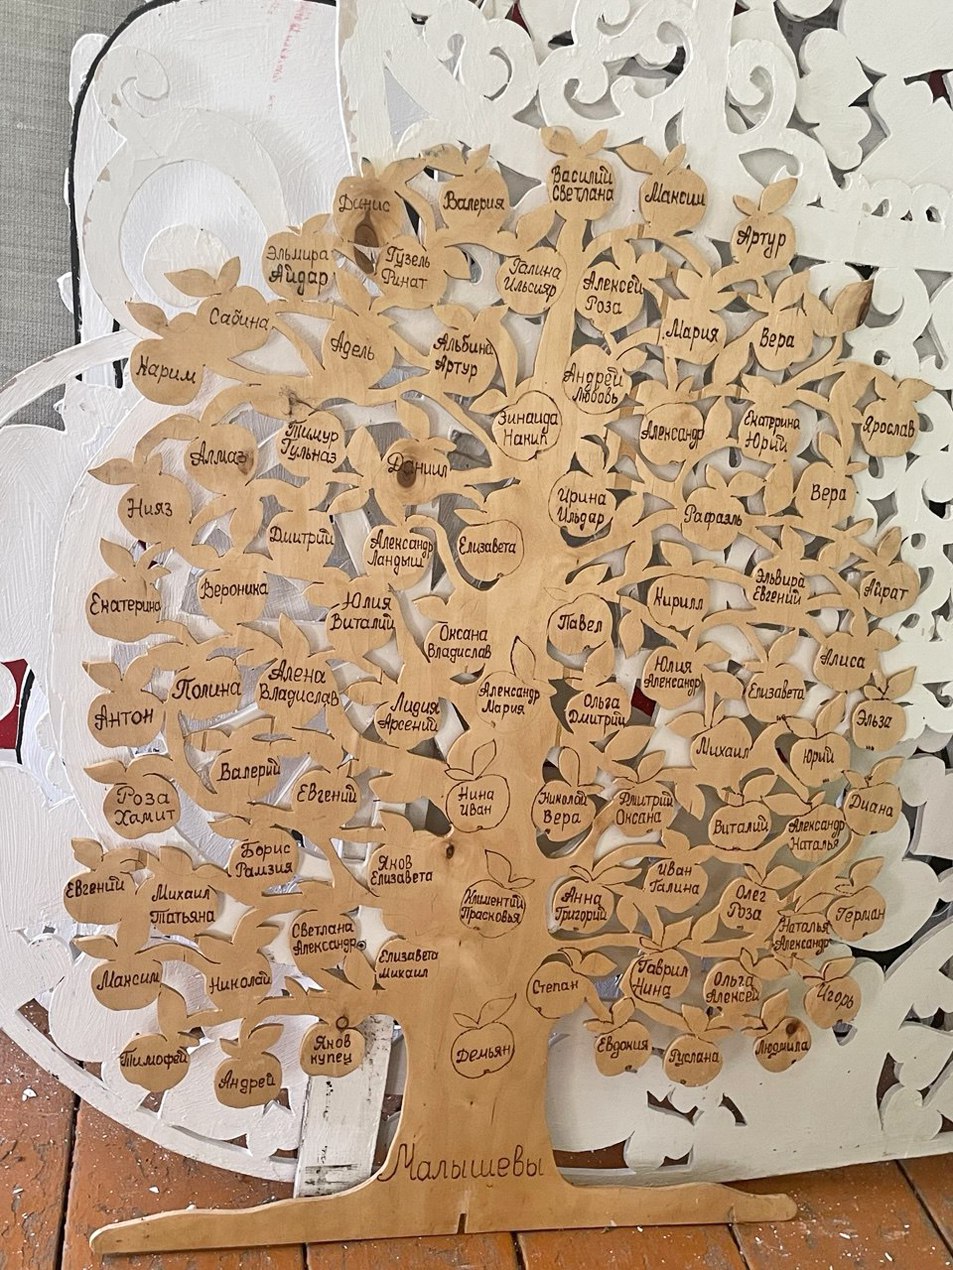 Василий
Светлана
Денис
Валерия
Максим
Артур
Эльмира
Айдар
Гузель
Ринат
Галина
Ильсияр
Алексей
Роза
Сабина
Адель
Альбина
Артур
Мария
Вера
Карим
Андрей
Любовь
Зинаида
Накип
Александр
Екатерина
Юрий
Ярослав
Алмаз
Тимур
Гульназ
Даниил
Нияз
Ирина
Ильдар
Рафаэль
Вера
Дмитрий
Александр
Ландыш
Елизавета
Екатерина
Вероника
Юлия
Виталий
Оксана
Владислав
Павел
Кирилл
Эльвира
Евгений
Айрат
Антон
Полина
Алена
Владислав
Лидия
Арсений
Александр
Мария
Ольга
Дмитрий
Юлия
Александр
Елизавета
Алиса
Эльза
Михаил
Юрий
Роза
Хамит
Валерий
Евгений
Нина
Иван
Николай
Вера
Дмитрий
Оксана
Виталий
Александр
Наталья
Диана
Евгений
Михаил
Татьяна
Борис
Рамзия
Яков
Елизавета
Климентий
Прасковья
Анна
Григорий
Иван
Галина
Олег
Роза
Наталья
Александр
Герман
Максим
Николай
Светлана
Александр
Елизавета
Михаил
Степан
Гаврил
Нина
Ольга
Алексей
Игорь
Тимофей
Андрей
Яков
купец
Демьян
Евдокия
Руслана
Людмила
Малышевы